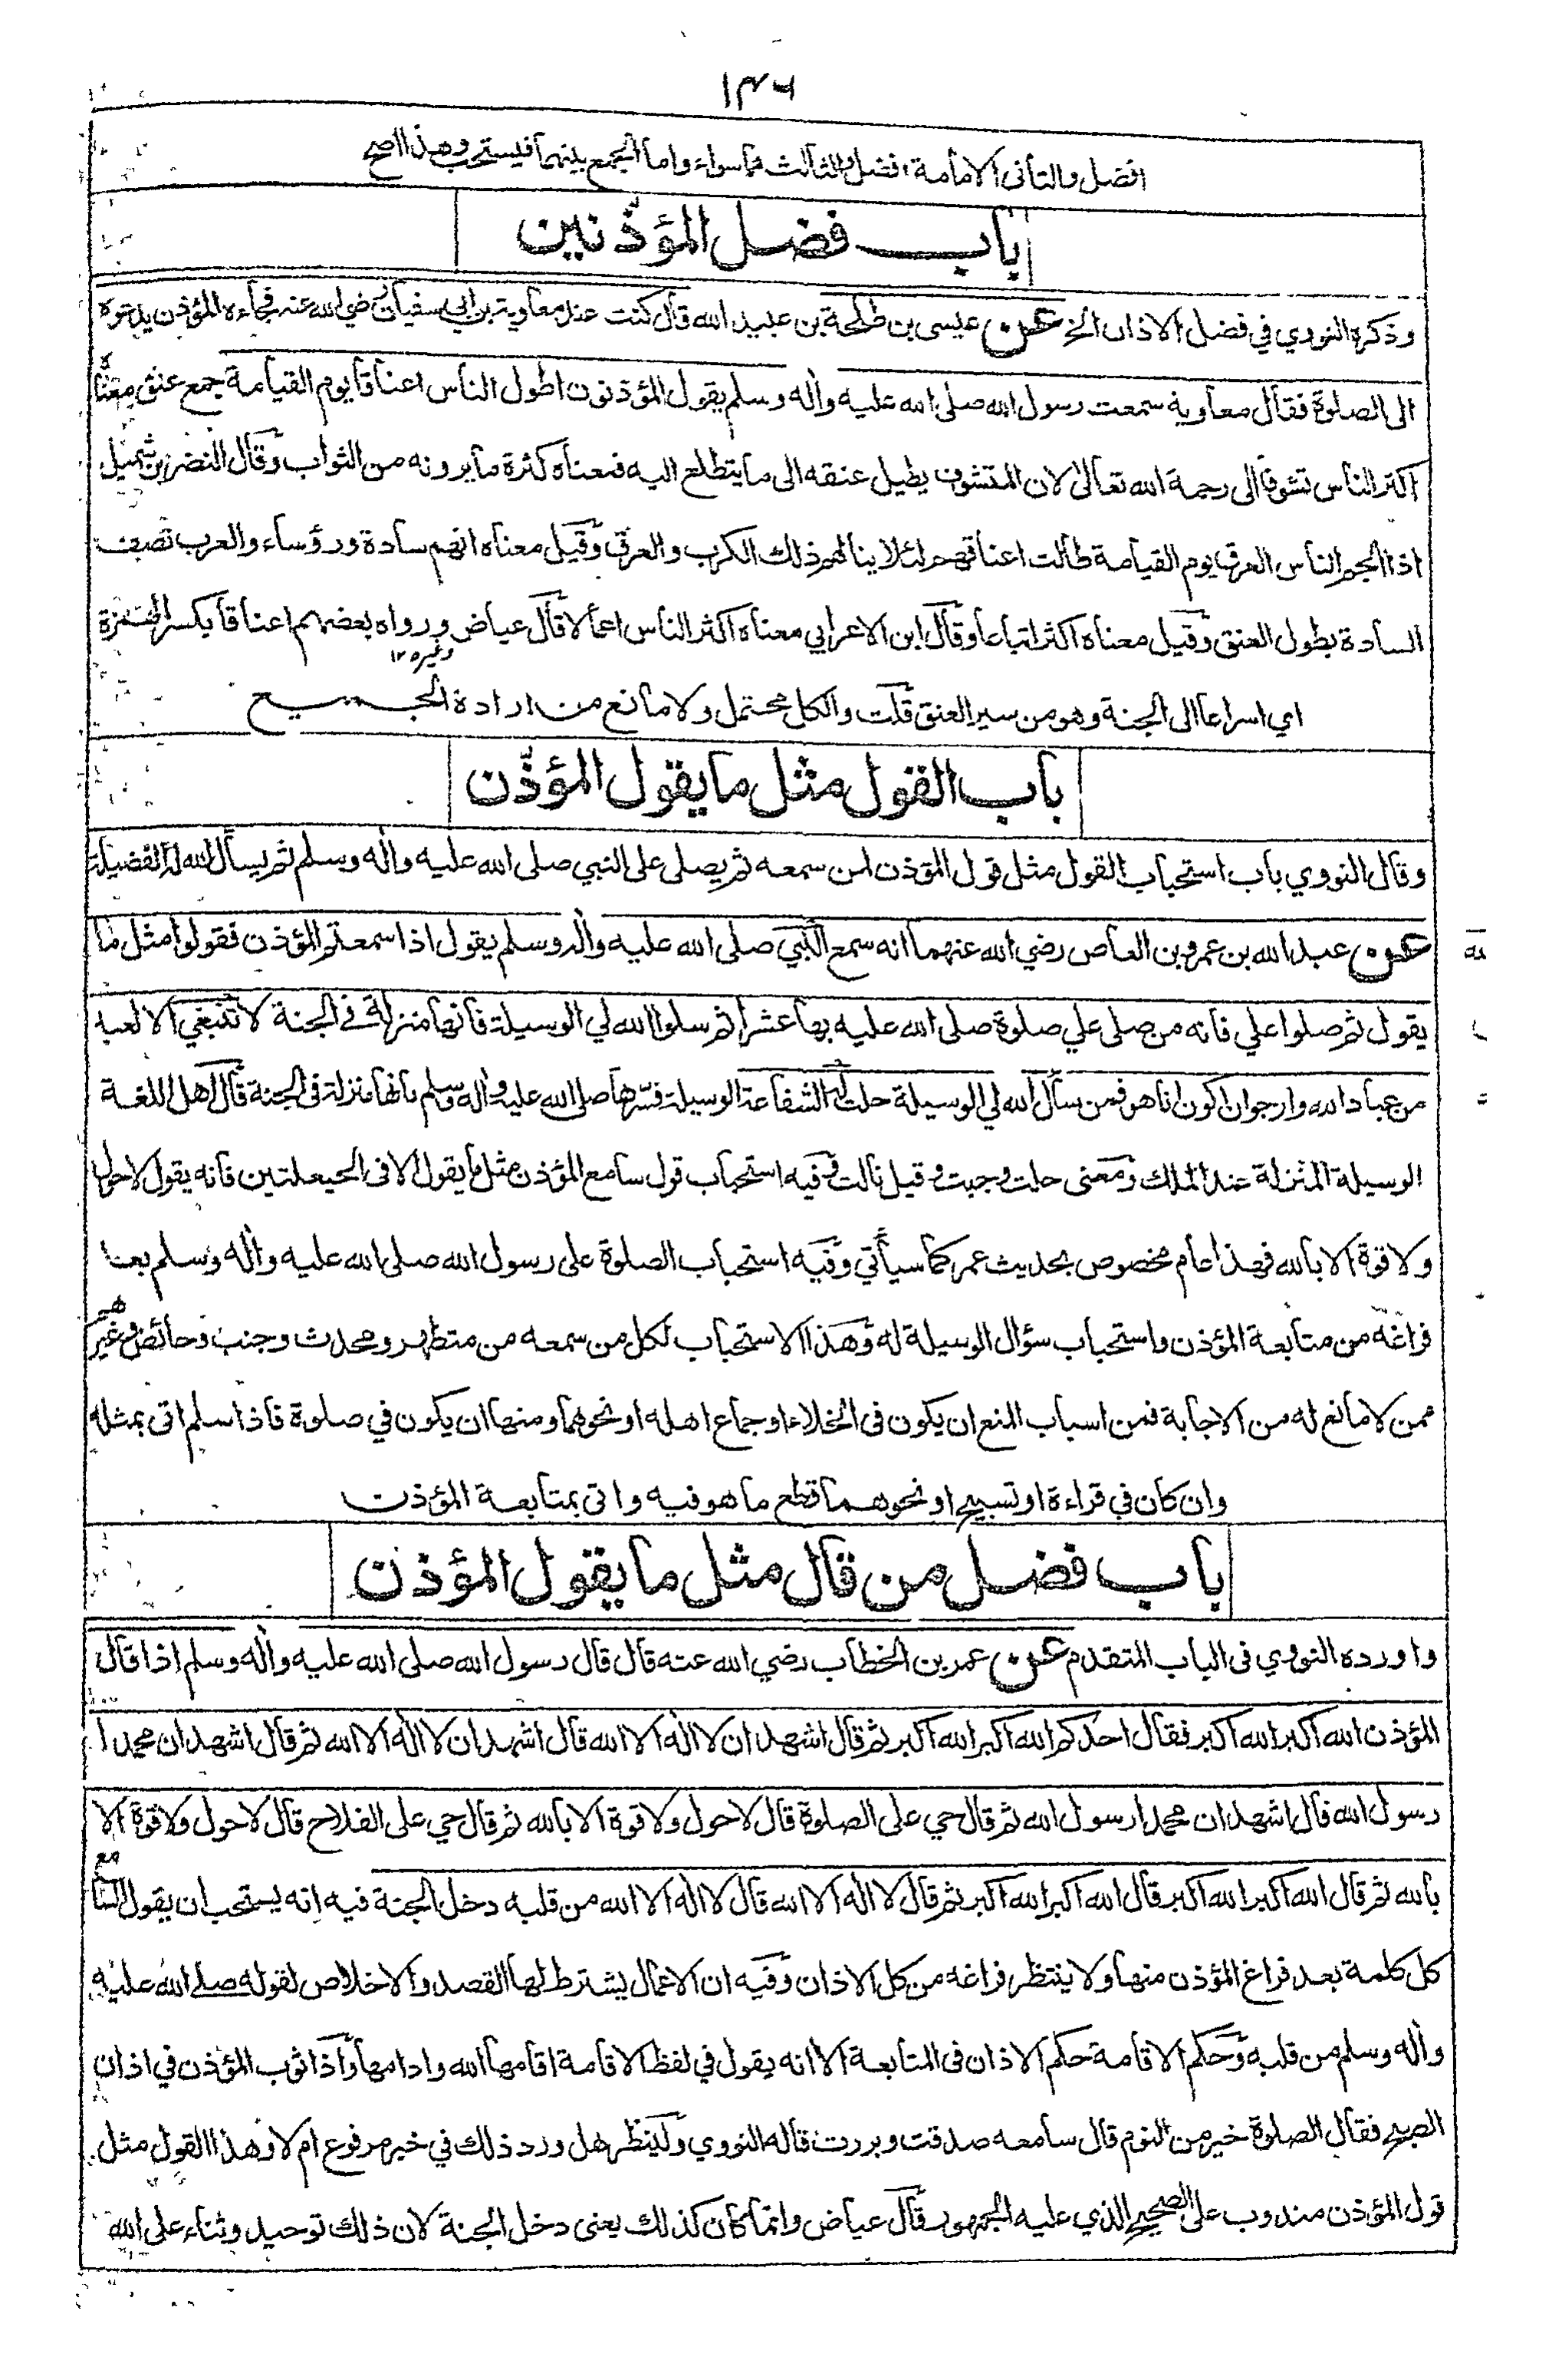 ١٣٦
افضل والثاني الامامة افضل والثالث هما سواء واما الجمع بينهما فيستحب وهذا اصح
باب فضل المؤذنين
وذكره النووي في فضل الاذان الخ عن عيسى بن طلحة بن عبيد الله قال كنت عند معاوية بن ابي سفيان رضي الله عنه فجاءه المؤذن يدعوه
الى الصلوة فقال معاوية سمعت رسول الله صلى الله عليه واٰله وسلم يقول المؤذنون اطول الناس اعناقا يوم القيامة جمع عنق معناه
اكثر الناس تشوفا الى رحمة الله تعالى لان المتشوف يطيل عنقه الى ما يتطلع اليه فمعناه كثرة ما يرونه من الثواب وقال النضر بن شميل
اذا الجم الناس العرق يوم القيامة طالت اعناقهم لئلا ينالهم ذلك الكرب والعرق وقيل معناه انهم سادة ورؤساء والعرب تصف
السادة بطول العنق وقيل معناه اكثر اتباعا وقال ابن الاعرابي معناه اكثر الناس اعمالا قال عياض وغيره ١٢ ورواه بعضهم اعناقا بكسر الهمزة
اي اسراعا الى الجنة وهو من سير العنق قلت والكل محتمل ولا مانع من ارادة الجميع
باب القول مثل ما يقول المؤذّن
وقال النووي باب استحباب القول مثل قول المؤذن لمن سمعه ثم يصلى على النبي صلى الله عليه واٰله وسلم ثم يسأل الله له الفضيلة
عن عبد الله بن عمرو بن العاص رضي الله عنهما انه سمع النبي صلى الله عليه واٰله وسلم يقول اذا سمعتم المؤذن فقولوا مثل ما
يقول ثم صلوا علي فانه من صلى علي صلوة صلى الله عليه بها عشرا ثم سلوا الله لي الوسيلة فانها منزلة في الجنة لا تنبغي الا لعبد
من عباد الله وارجو ان اكون انا هو فمن سأل الله لي الوسيلة حلت له الشفاعة الوسيلة فسّرها صلى الله عليه واٰله وسلم بانها منزلة في الجنة قال اهل اللغة
الوسيلة المنزلة عند الملك ومعنى حلت وجبت وقيل نالت وفيه استحباب قول سامع المؤذن مثل ما يقول الا في الحيعلتين فانه يقول لا حول
ولا قوة الا بالله فهذا عام مخصوص بحديث عمر كما سيأتي وفيه استحباب الصلوة على رسول الله صلى الله عليه واٰله وسلم بعد
فراغه من متابعة المؤذن واستحباب سؤال الوسيلة له وهذا الاستحباب لكل من سمعه من متطهر ومحدث وجنب وحائض وغيرهم
ممن لا مانع له من الاجابة فمن اسباب المنع ان يكون في الخلاء او جماع اهله او نحوهما ومنها ان يكون في صلوة فاذا سلم اتى بمثله
وان كان في قراءة او تسبيح او نحوهما قطع ما هو فيه واتى بمتابعة المؤذن
باب فضل من قال مثل ما يقول المؤذن
واورده النووي في الباب المتقدم عن عمر بن الخطاب رضي الله عنه قال قال رسول الله صلى الله عليه واٰله وسلم اذا قال
المؤذن الله اكبر الله اكبر فقال احدكم الله اكبر الله اكبر ثم قال اشهد ان لا اله الا الله قال اشهد ان لا اله الا الله ثم قال اشهد ان محمدا
رسول الله قال اشهد ان محمدا رسول الله ثم قال حي على الصلوة قال لا حول ولا قوة الا بالله ثم قال حي على الفلاح قال لا حول ولا قوة الا
بالله ثم قال الله اكبر الله اكبر قال الله اكبر الله اكبر ثم قال لا اله الا الله قال لا اله الا الله من قلبه دخل الجنة فيه انه يستحب ان يقول السامع
كل كلمة بعد فراغ المؤذن منها ولا ينتظر فراغه من كل الاذان وفيه ان الاعمال يشترط لها القصد والاخلاص لقوله صلى الله عليه
واٰله وسلم من قلبه وحكم الاقامة حكم الاذان في المتابعة الا انه يقول في لفظ الاقامة اقامها الله وادامها واذا ثوب المؤذن في اذان
الصبح فقال الصلوة خير من النوم قال سامعه صدقت وبررت قاله النووي ولينظر هل ورد ذلك في خبر مرفوع ام لا وهذا القول مثل
قول المؤذن مندوب على الصحيح الذي عليه الجمهور قال عياض وانما كان كذلك يعني دخل الجنة لان ذلك توحيد وثناء على الله